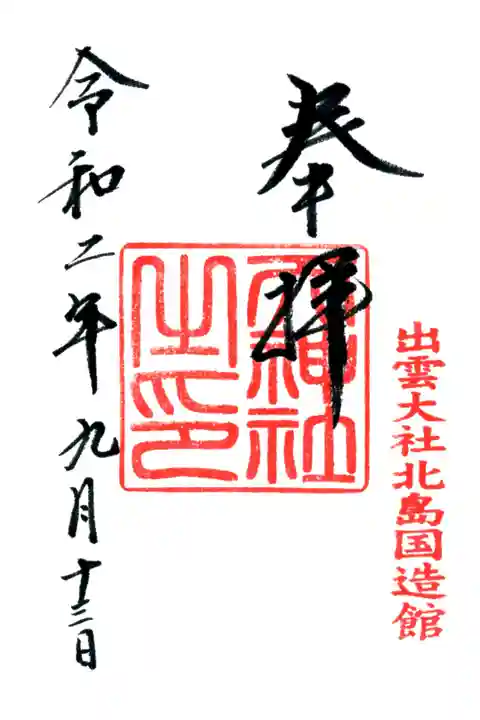 出雲大社北島国造館
奉拝
天神社
之印
令和二年九月十三日